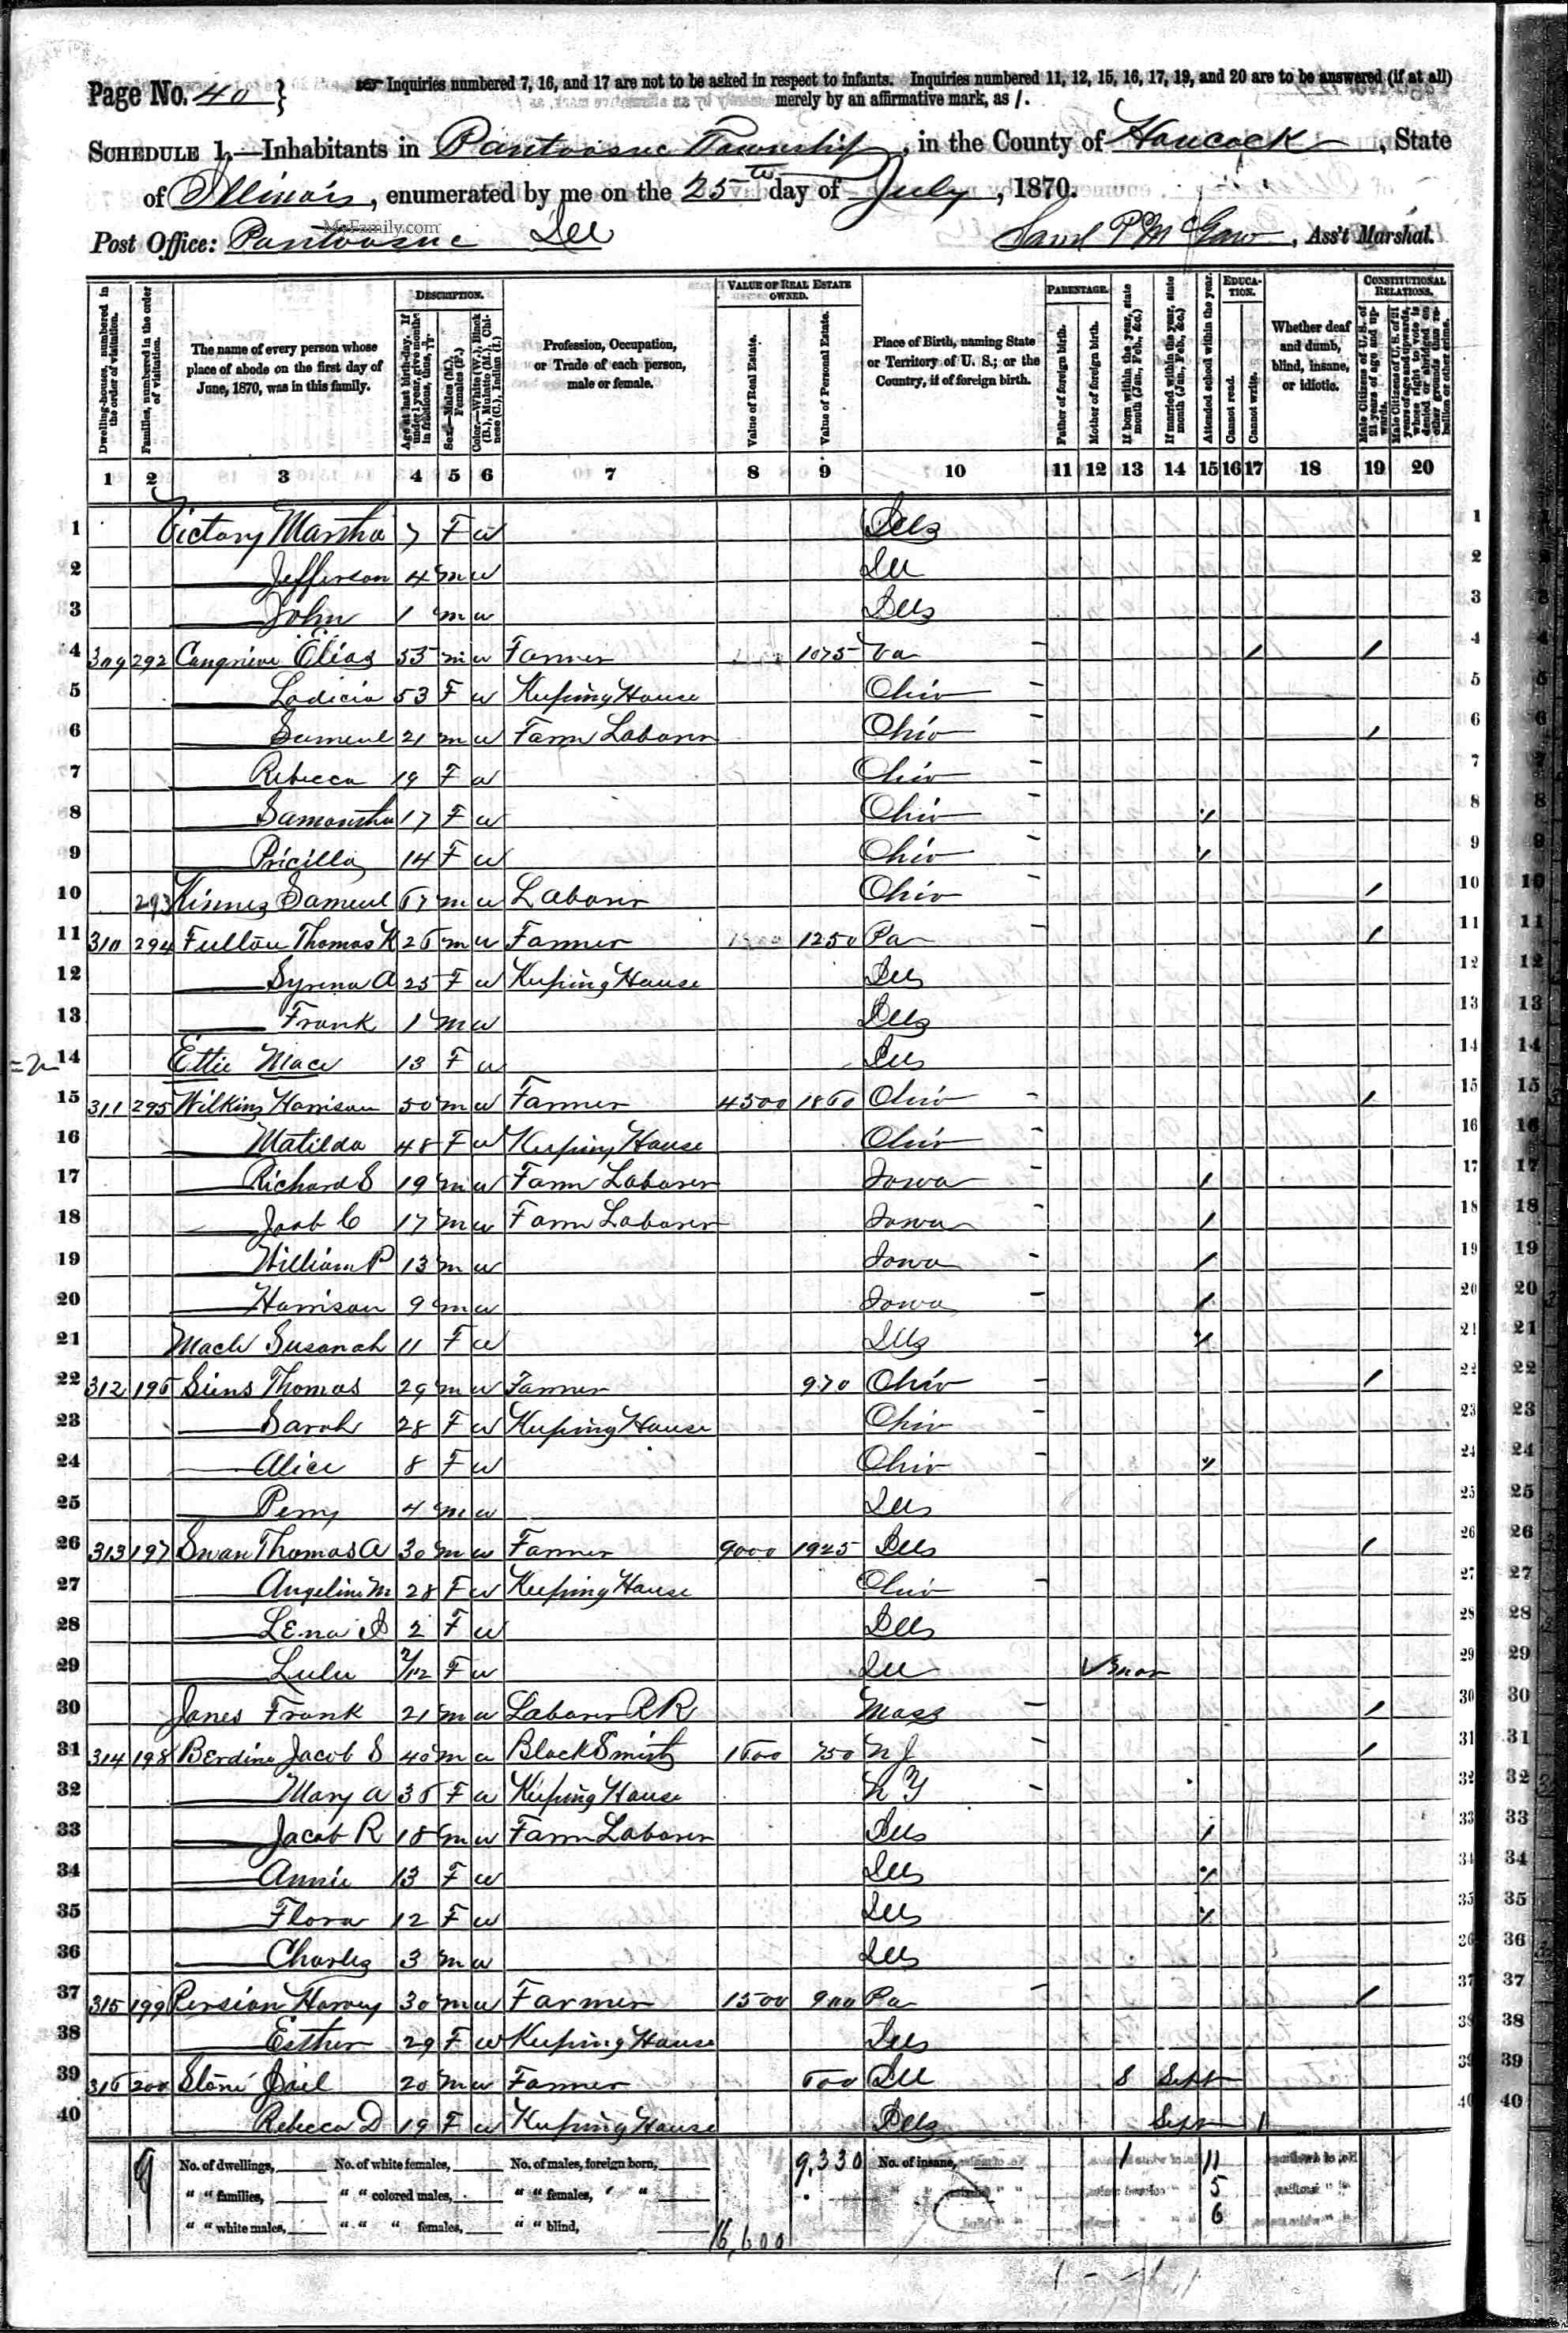 Page No. 40 } Inquiries numbered 7, 16, and 17 are not to be asked in respect to infants. Inquiries numbered 11, 12, 15, 16, 17, 19, and 20 are to be answered (if at all)
merely by an affirmative mark, as /.
SCHEDULE 1.—Inhabitants in Pontoosuc Township, in the County of Hancock, State
of Illinois, enumerated by me on the 25th day of July, 1870.
MyFamily.com
Post Office: Pontoosuc Ill Saml P McGaw, Ass't Marshal.
Dwelling-houses, numbered in the order of visitation.
Families, numbered in the order of visitation.
The name of every person whose place of abode on the first day of June, 1870, was in this family.
DESCRIPTION.
Age at last birth-day. If under 1 year, give months in fractions, thus, 3/12.
Sex.—Males (M.), Females (F.)
Color.—White (W.), Black (B.), Mulatto (M.), Chinese (C.), Indian (I.)
Profession, Occupation, or Trade of each person, male or female.
VALUE OF REAL ESTATE OWNED.
Value of Real Estate.
Value of Personal Estate.
Place of Birth, naming State or Territory of U. S.; or the Country, if of foreign birth.
PARENTAGE.
Father of foreign birth.
Mother of foreign birth.
If born within the year, state month (Jan., Feb., &c.)
If married within the year, state month (Jan., Feb., &c.)
Attended school within the year.
EDUCATION.
Cannot read.
Cannot write.
Whether deaf and dumb, blind, insane, or idiotic.
CONSTITUTIONAL RELATIONS.
Male Citizens of U. S. of 21 years of age and upwards.
Male Citizens of U. S. of 21 years of age and upwards, whose right to vote is denied or abridged on other grounds than rebellion or other crime.
1 2 3 4 5 6 7 8 9 10 11 12 13 14 15 16 17 18 19 20
1 Victory Martha 7 F W Ills 1
2 Jefferson 4 M W Ill 2
3 John 1 M W Ills 3
4 309 292 Elias 55 M W Farmer 1075 Va / / 4
5 Lodicia 53 F W Keeping House Ohio 5
6 Samuel 21 M W Farm Laborer Ohio / 6
7 Rebecca 19 F W Ohio 7
8 Samantha 17 F W Ohio / 8
9 Pricilla 14 F W Ohio / 9
10 293 Samuel 67 M W Laborer Ohio / 10
11 310 294 Fulton Thomas K 26 M W Farmer 1250 Pa / 11
12 Syrena A 25 F W Keeping House Ills 12
13 Frank 1 M W Ills 13
14 Ettie Mace 13 F W Ills 14
15 311 295 Wilkins Harrison 50 M W Farmer 4500 1860 Ohio / 15
16 Matilda 48 F W Keeping House Ohio 16
17 Richard S 19 M W Farm Laborer Iowa / 17
18 Joab C 17 M W Farm Laborer Iowa / 18
19 William P 13 M W Iowa / 19
20 Harrison 9 M W Iowa / 20
21 Susanah 11 F W Ills / 21
22 312 196 Sims Thomas 29 M W Farmer 970 Ohio / 22
23 Sarah 28 F W Keeping House Ohio 23
24 Alice 8 F W Ohio / 24
25 Perry 4 M W Ills 25
26 313 197 Swan Thomas A 30 M W Farmer 9000 1925 Ills / 26
27 Angeline M 28 F W Keeping House Ohio 27
28 Lena 2 F W Ills 28
29 Lulu /12 F W Ill 29
30 Janes Frank 21 M W Laborer R R Mass / 30
31 314 198 Berdine Jacob S 40 M W BlackSmith 1600 750 N J / 31
32 Mary A 36 F W Keeping House N Y 32
33 Jacob R 18 M W Farm Laborer Ills / 33
34 Annie 13 F W Ills / 34
35 Flora 12 F W Ills / 35
36 Charles 3 M W Ills 36
37 315 199 Persian Harvey 30 M W Farmer 1500 900 Pa / 37
38 Esther 29 F W Keeping House Ills 38
39 316 200 Stone 20 M W Farmer 600 Ill 8 Sept 39
40 Rebecca D 19 F W Keeping House Ills Sept / 40
No. of dwellings, No. of white females, No. of males, foreign born, 9,330 No. of insane, 1 11
9 " " families, " " colored males, " " females, " " 5
" " white males, " " " females, " " blind, 16,600 6